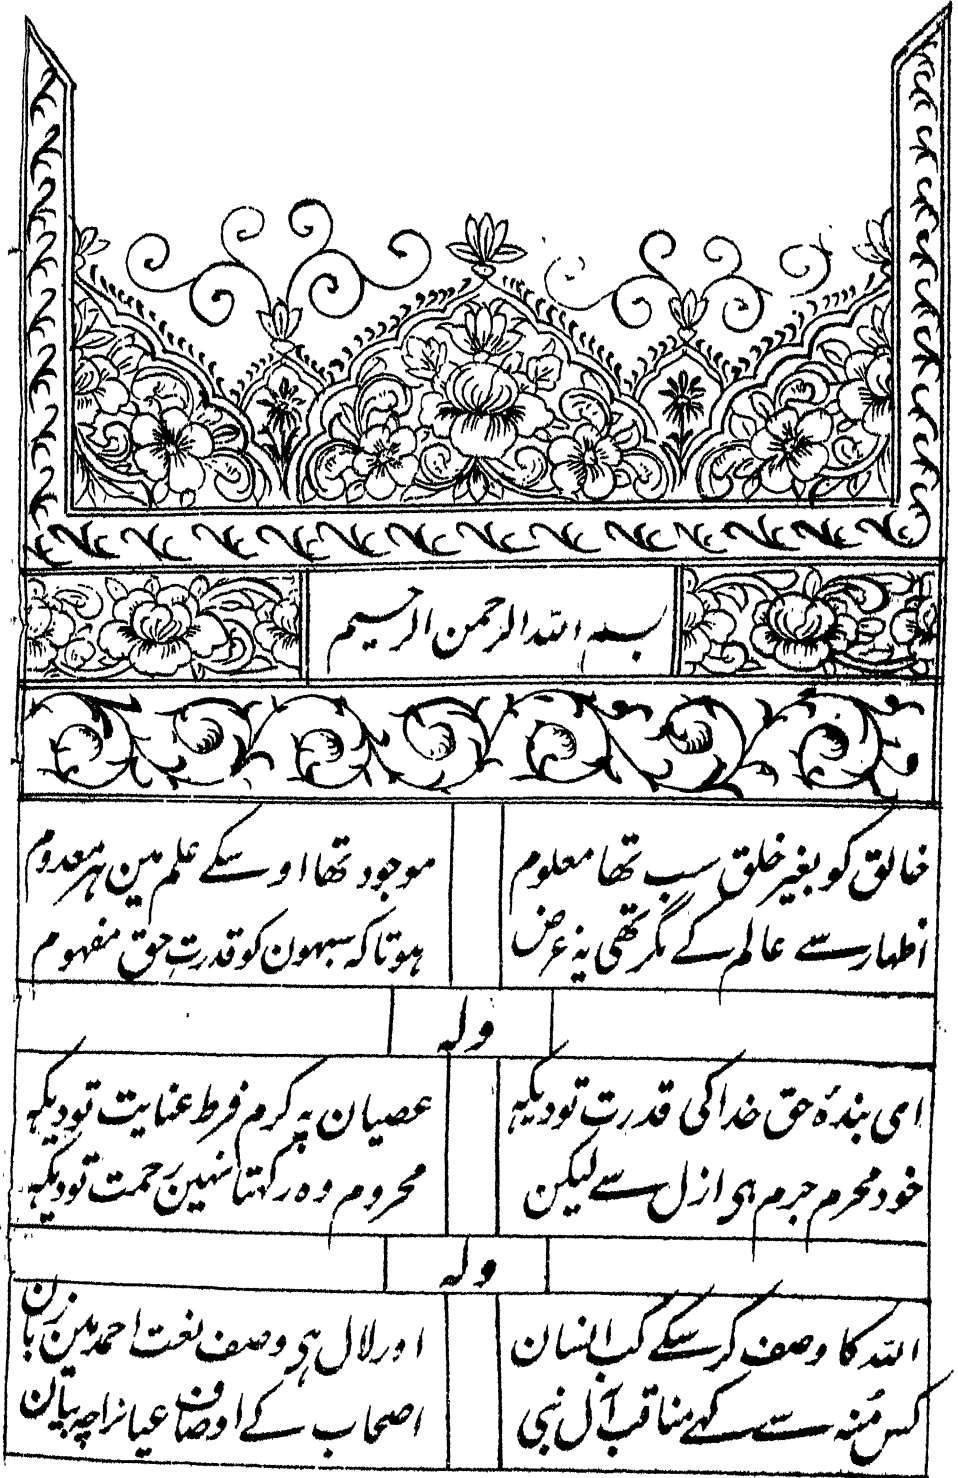 بسم الله الرحمن الرحیم
خالق کو بغیر خلق سب تھا معلوم موجود تھا اوسکے علم مین ہر معدوم
اظہار سے عالم کے مگر تھی یہ غرض ہوتا کہ سبہون کو قدرت حق مفہوم
وله
ای بندۂ حق خدا کی قدرت تو دیکہہ عصیان پہ کرم فرط عنایت تو دیکہہ
خود محرم جرم ہی ازل سے لیکن محروم وہ رکہتا نہین رحمت تو دیکہہ
وله
اللہ کا وصف کر سکے کب انسان اور لال ہی وصف نعت احمد مین زبان
کس مُنہ سے کہے مناقب آل نبی اصحاب کے اوصاف عیانرا چہ بیان